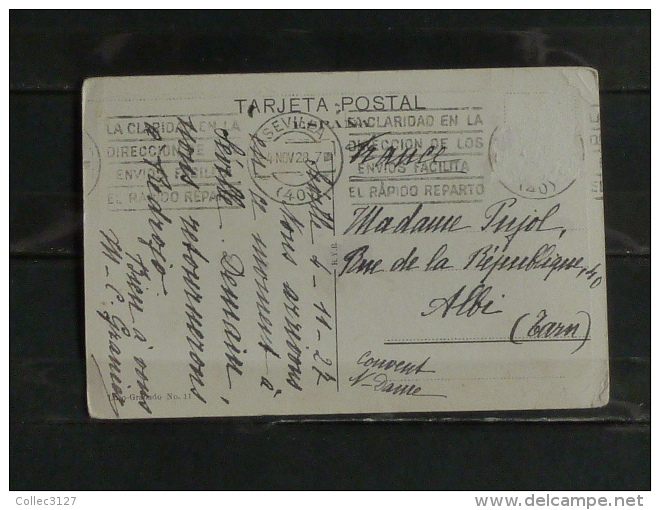 TARJETA POSTAL
LA CLARIDAD EN LA
DIRECCION DE
ENVIOS FACILI
EL RAPIDO REPARTO
SEVILLA
4 NOV 28 7
(40)
LA CLARIDAD EN LA
DIRECCION DE LOS
ENVIOS FACILITA
EL RAPIDO REPARTO
(40)
France
Madame Pujol,
Rue de la République, 40
Albi
(Tarn)
Couvent
N-Dame
4-11-27
Nous arrivons
en ce moment à
Séville. Demain,
nous retournerons
à
Bien à vous
M-C. Granier
-Grabado No. 11
Collec3127
www.delcampe.net